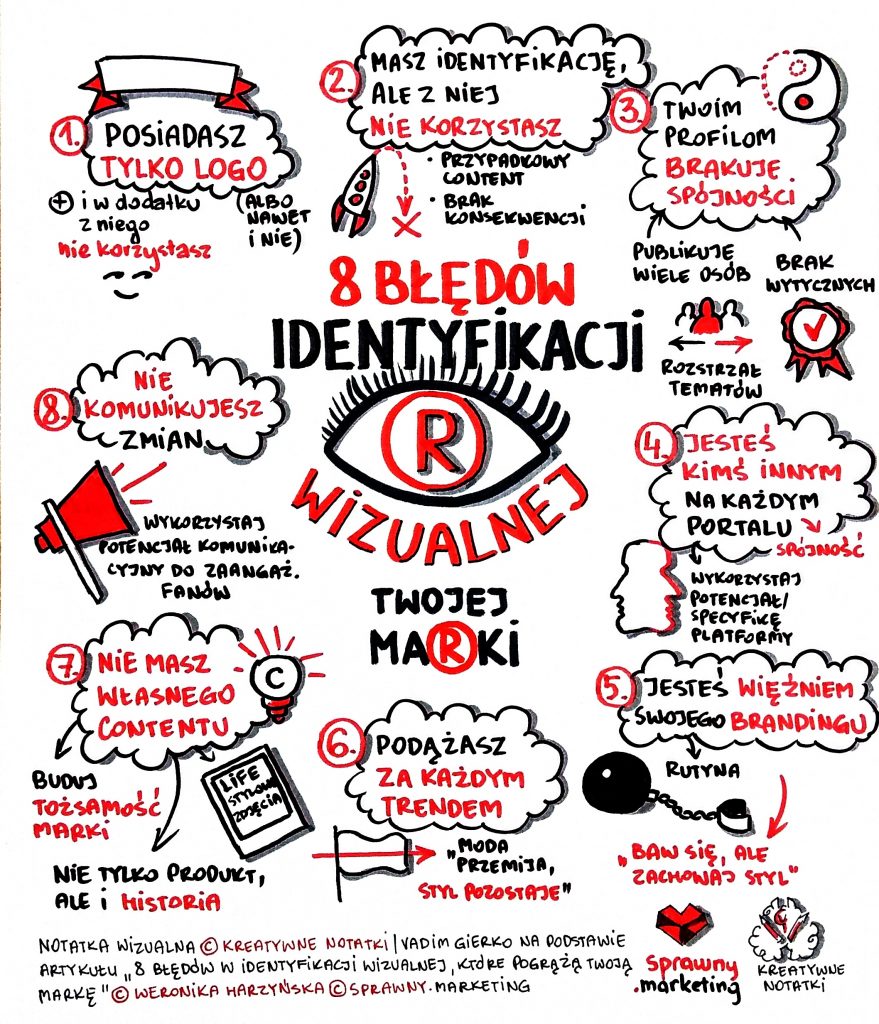 8 BŁĘDÓW
IDENTYFIKACJI
R
WIZUALNEJ
TWOJEJ
MARKI
1. POSIADASZ
TYLKO LOGO
+ i w dodatku
z niego
nie korzystasz
(ALBO
NAWET
I NIE)
2. MASZ IDENTYFIKACJĘ,
ALE Z NIEJ
NIE KORZYSTASZ
• PRZYPADKOWY
CONTENT
• BRAK
KONSEKWENCJI
3. TWOIM
PROFILOM
BRAKUJE
SPÓJNOŚCI
PUBLIKUJE
WIELE OSÓB
BRAK
WYTYCZNYCH
ROZSTRZAŁ
TEMATÓW
4. JESTEŚ
KIMŚ INNYM
NA KAŻDYM
PORTALU
SPÓJNOŚĆ
WYKORZYSTAJ
POTENCJAŁ/
SPECYFIKĘ
PLATFORMY
5. JESTEŚ WIĘŹNIEM
SWOJEGO BRANDINGU
RUTYNA
„BAW SIĘ, ALE
ZACHOWAJ STYL"
6. PODĄŻASZ
ZA KAŻDYM
TRENDEM
„MODA
PRZEMIJA,
STYL POZOSTAJE"
7. NIE MASZ
WŁASNEGO
CONTENTU
C
BUDUJ
TOŻSAMOŚĆ
MARKI
LIFE
STYLOWE
ZDJĘCIA
NIE TYLKO PRODUKT,
ALE I HISTORIA
8. NIE
KOMUNIKUJESZ
ZMIAN
WYKORZYSTAJ
POTENCJAŁ KOMUNIKA-
CYJNY DO ZAANGAŻ.
FANÓW
NOTATKA WIZUALNA © KREATYWNE NOTATKI | VADIM GIERKO NA PODSTAWIE
ARTYKUŁU „8 BŁĘDÓW W IDENTYFIKACJI WIZUALNEJ, KTÓRE POGRĄŻĄ TWOJĄ
MARKĘ" © WERONIKA HARZYŃSKA © SPRAWNY.MARKETING
sprawny
.marketing
KREATYWNE
NOTATKI